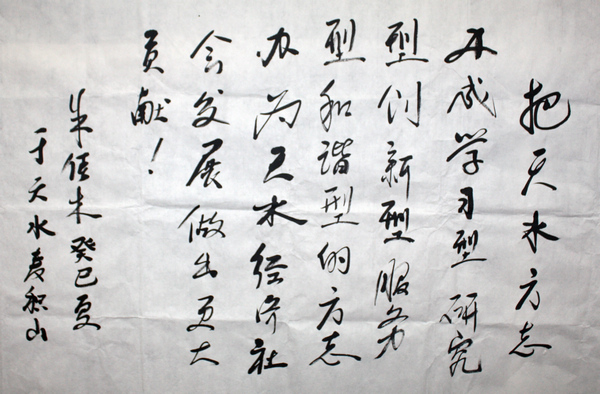 把天水方志
办成学习型研究
型创新型服务
型和谐型的方志
办为天水经济社
会发展做出更大
贡献！
朱佳木癸巳夏
于天水麦积山